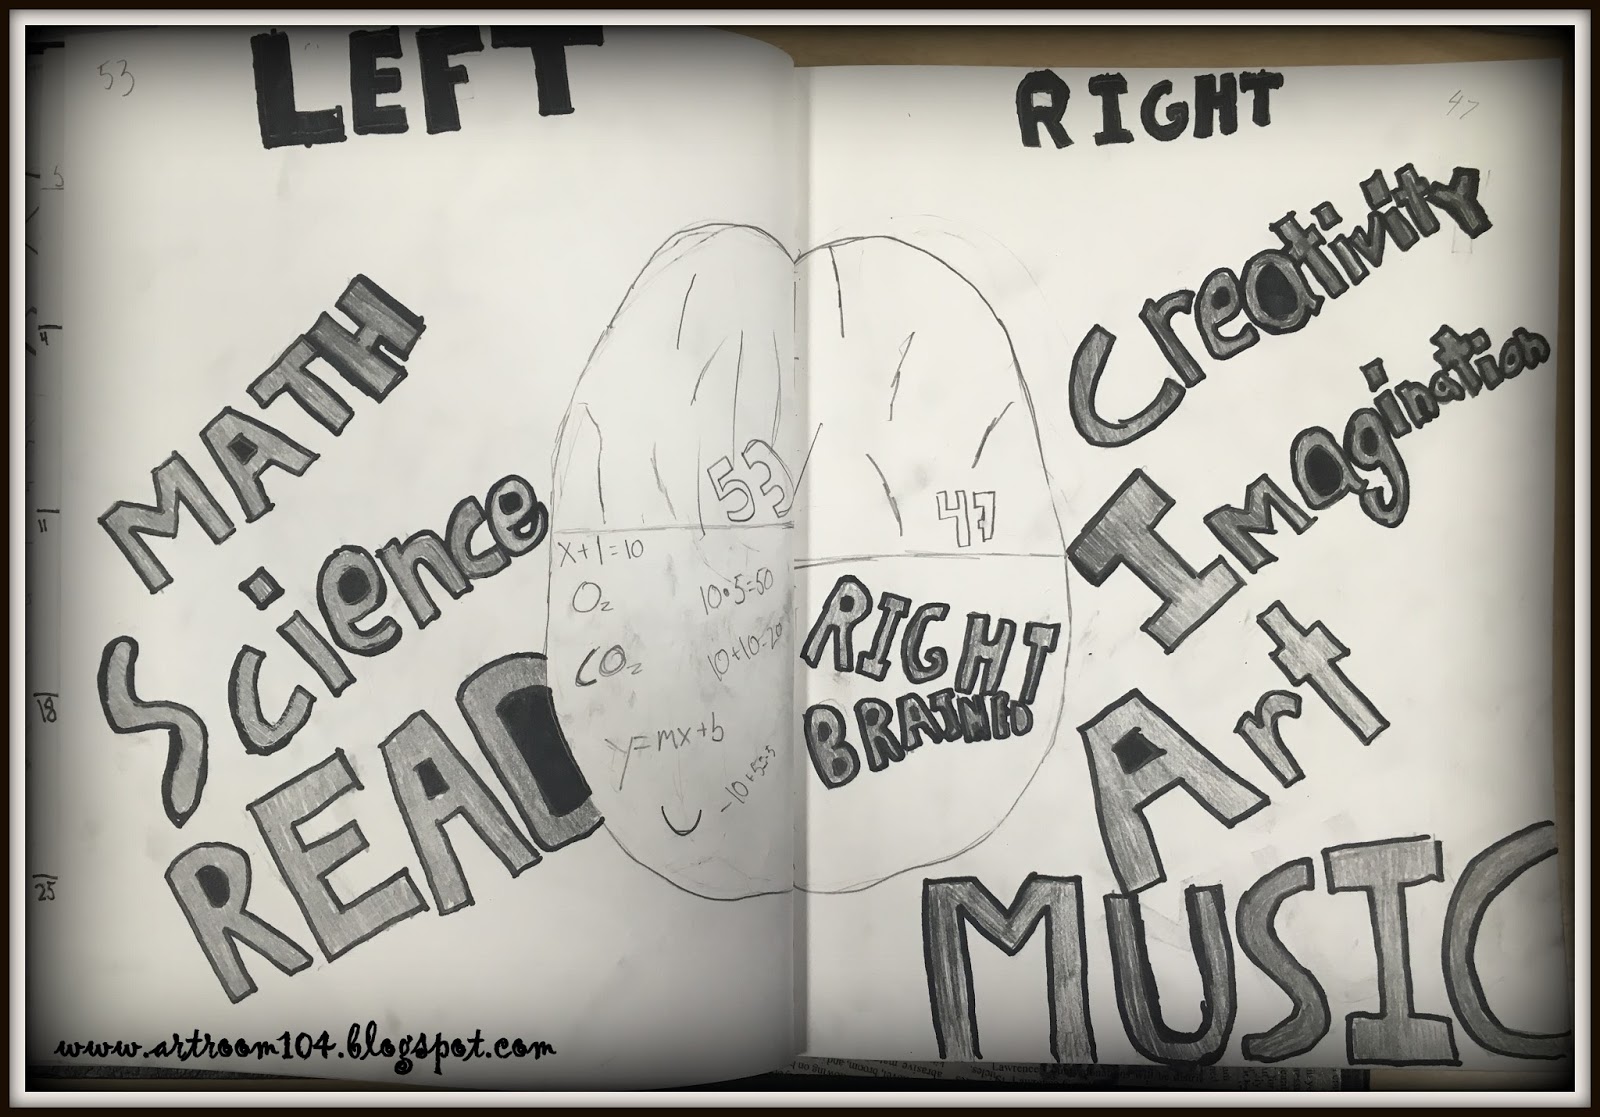 LEFT
53
MATH
Science
READ
53
x+1=10
O2
10•5=50
CO2
10+10=20
y=mx+b
www.artroom104.blogspot.com
RIGHT
47
Creativity
Imagination
Art
MUSIC
47
RIGHT
BRAINED
5
4
11
18
25